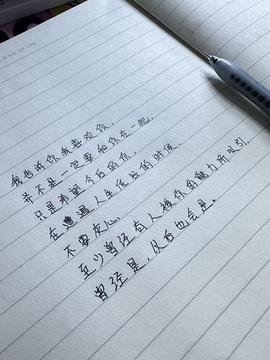 我告诉你我喜欢你，
并不是一定要和你在一起，
只是希望今后的你，
在遭遇人生低谷的时候，
不要灰心，
至少曾经有人被你的魅力所吸引，
曾经是，以后也会是。